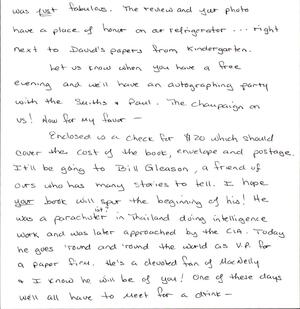 was just fabulous. The review and your photo
have a place of honor on our refrigerator ... right
next to David's papers from kindergarten.
Let us know when you have a free
evening and we'll have an autographing party
with the Smiths & Paul. The champaign on
us! Now for my favor —
Enclosed is a check for $20 which should
cover the cost of the book, envelope and postage.
It'll be going to Bill Gleason, a friend of
ours who has many stories to tell. I hope
your book will spur the beginning of his! He
was a parachutist in Thailand doing intelligence
work and was later approached by the CIA. Today
he goes 'round and 'round the world as V.P. for
a paper firm. He's a devoted fan of MacNelly
& I know he will be of you! One of these days
we'll all have to meet for a drink —